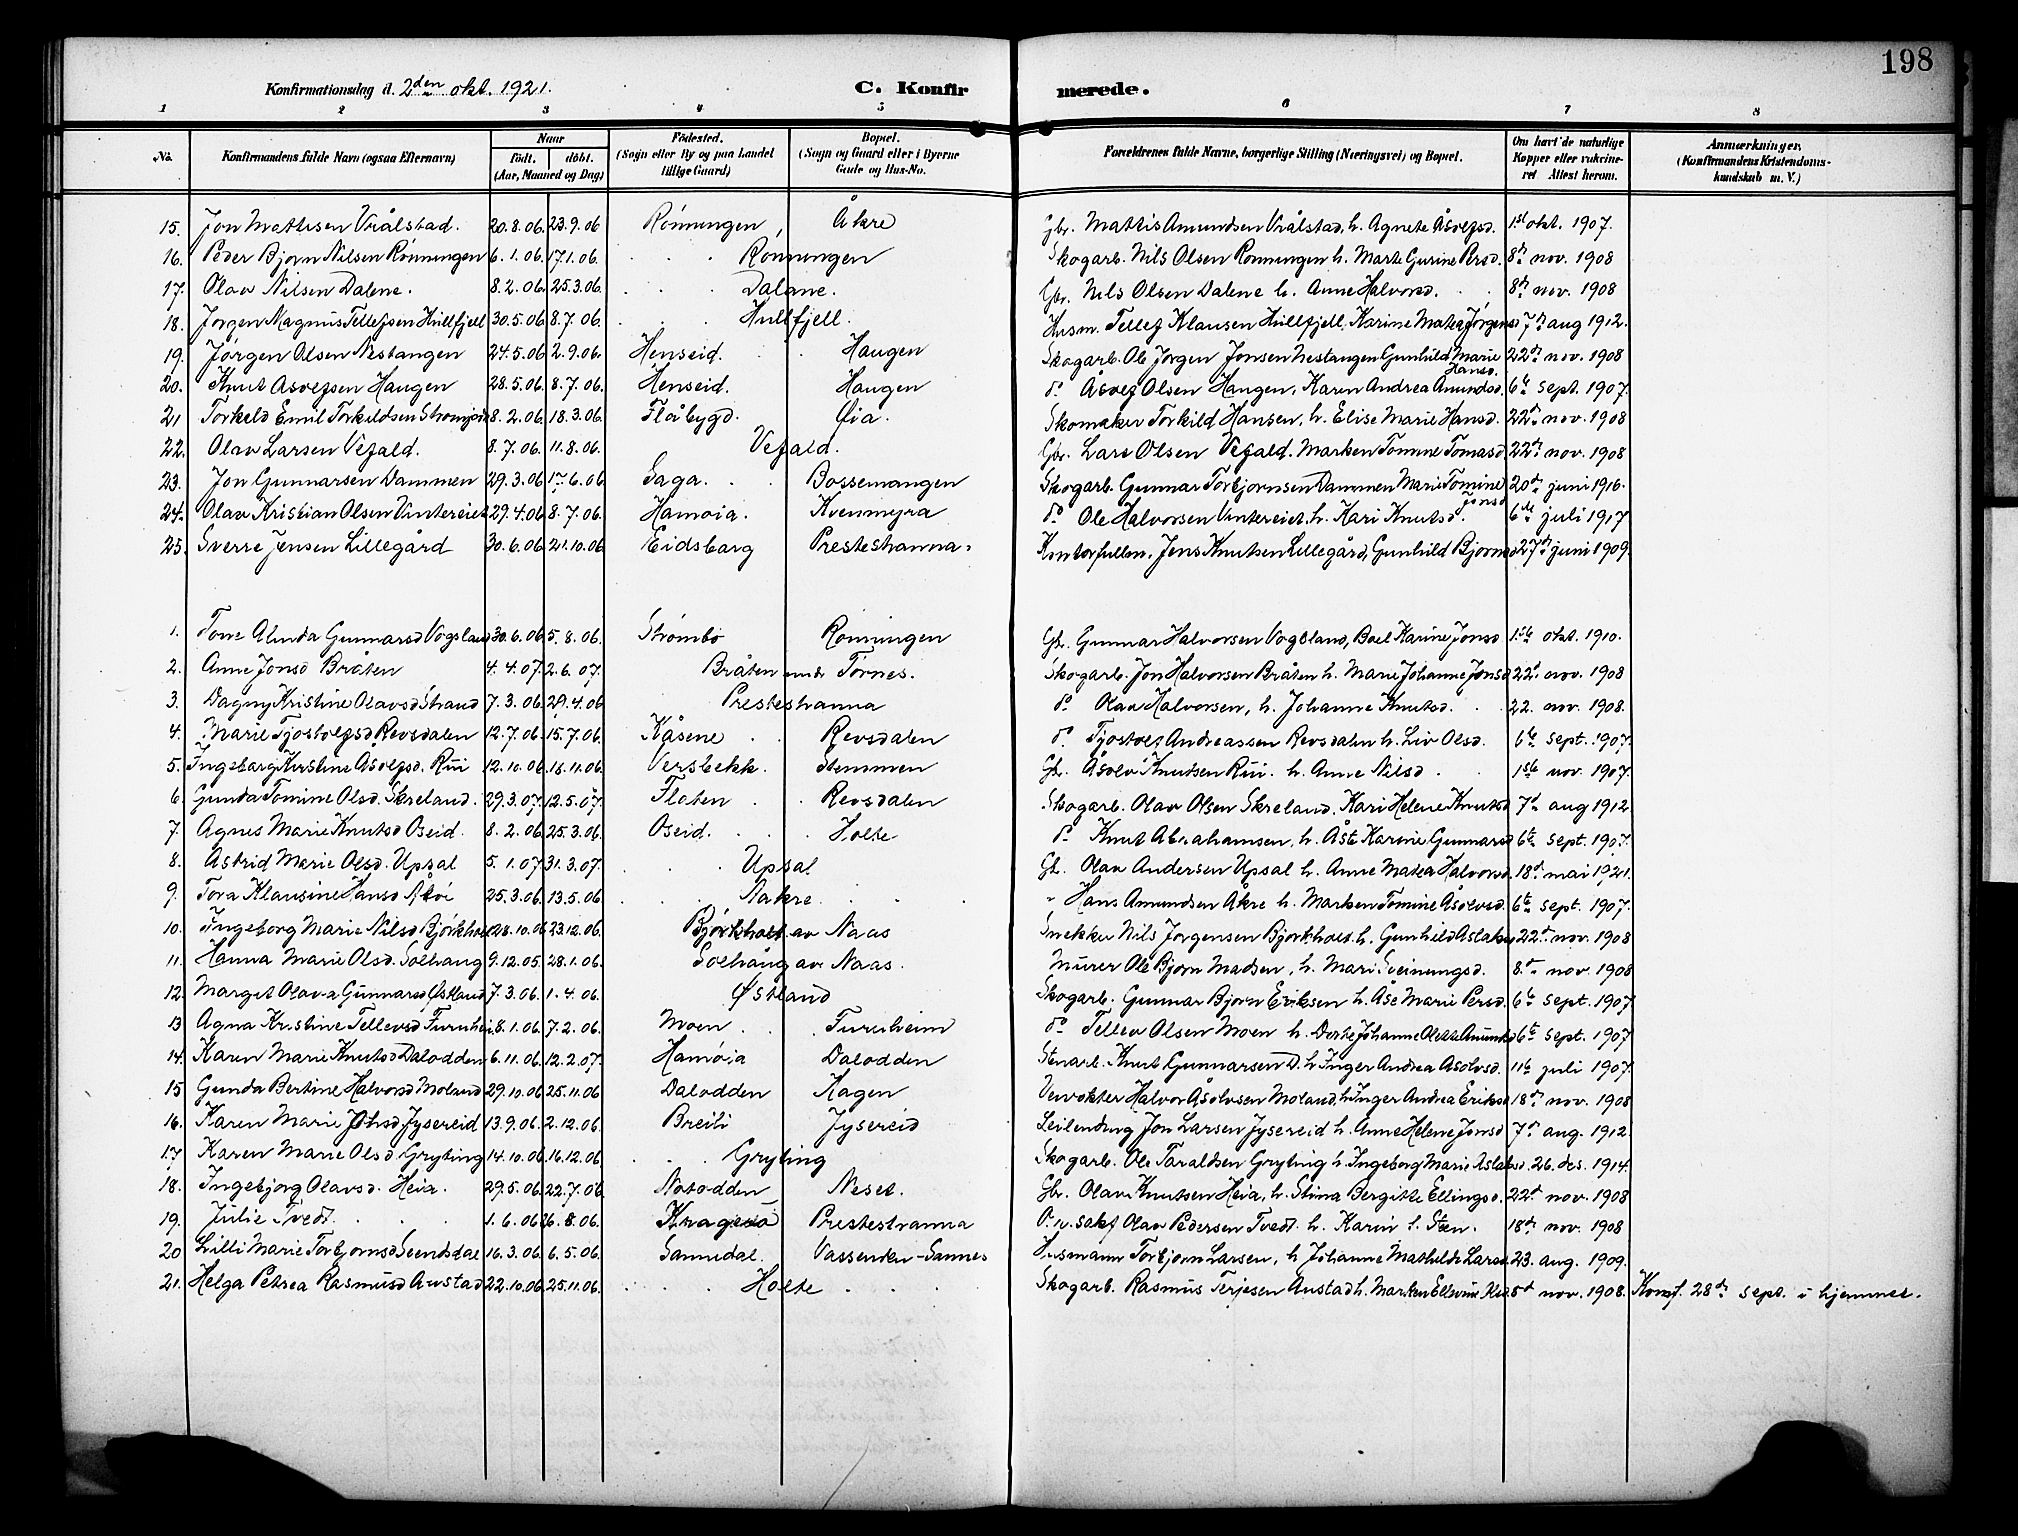 198
Konfirmationsdag d. 2den okt. 1921. C. Konfirmerede.
1 2 3 4 5 6 7 8
No. Konfirmandens fulde Navn (ogsaa Efternavn) Naar født. døbt. (Aar, Maaned og Dag) Fødested. (Sogn eller By og paa Landet tillige Gaard) Bopæl. (Sogn og Gaard eller i Byerne Gade og Hus-No. Forældrenes fulde Navne, borgerlige Stilling (Næringsvei) og Bopæl. Om havt de naturlige Kopper eller vakcineret Attest herom. Anmærkninger. (Konfirmandens Kristendomskundskab m. V.)
15. Jon Mattisen Vrålstad. 20.8.06. 23.9.06 Rønningen Åkre Gbr. Mattis Amundsen Vrålstad, h. Agnete Åsolfsd. 1st okt. 1907.
16. Peder Bjørn Nilsen Rønningen 6.1.06. 17.1.06. Rønningen Skogarb. Nils Olsen Rønningen h. Marte Gurine Persd. 8de nov. 1908
17. Olav Nilsen Dalene. 8.2.06. 25.3.06. Dalane. Gbr. Nils Olsen Dalene h. Anne Halvorsd. 8de nov. 1908
18. Jørgen Magnus Tellefsen Hullfjell 30.5.06. 8.7.06. Hullfjell. Husm. Tellef Klausen Hullfjell, Karine Matea Jørgensd 7de aug 1912.
19. Jørgen Olsen Nestangen 24.5.06 2.9.06. Henseid. Haugen Skogarb. Ole Jørgen Jonsen Nestangen Gunhild Marie Hansd. 22de nov. 1908
20. Knut Åsolfsen Haugen 28.5.06. 8.7.06. Henseid. Haugen do Åsolf Olsen Haugen, Karen Andrea Amundsd. 6te sept. 1907.
21 Torkeld Emil Torkildsen 8.2.06. 18.3.06. Flåbygd. Øia. Skomaker Torkild Hansen, h. Elise Marie Hansd. 22de nov. 1908
22. Olav Larsen Vefald. 8.7.06. 11.8.06. Vefald. Gbr. Lars Olsen Vefald. Marken Tomine Tomasd. 22de nov. 1908
23. Jon Gunnarsen Dammen 29.3.06 17.6.06 Saga. Bossemangen Skogarb. Gunnar Torbjørnsen Dammen Marie Tomine Jonsd 20de juni 1916.
24. Olav Kristian Olsen Vintereiet 29.4.06 8.7.06. Hamøia. Kvenmyra do Ole Halvorsen Vintereiet, h. Kari Knutsd. 6te juli 1917
25. Sverre Jensen Lillegård 30.6.06 21.10.06 Eidsborg Prestestranna. Kontorfullm. Jens Knutsen Lillegård, Gunhild Bjørnsd 27de juni 1909.
1. Tone Alinda Gunnarsd Vogsland 30.6.06 5.8.06. Strømbo Rønningen Gbr. Gunnar Halvorsen Vogsland, Boel Karine Jonsd 1ste okt. 1910.
2. Anne Jonsd Bråten 4.4.07. 2.6.07. Bråten under Tørnes. Skogarb. Jon Halvorsen Bråten h. Marie Johanne Jonsd 22d nov. 1908
3. Dagny Kristine Olavsd Strand 7.3.06. 29.4.06 Prestestranna do Olav Halvorsen, h. Johanne Knutsd. 22. nov. 1908.
4. Marie Tjostolfsd Revsdalen 12.7.06. 15.7.06. Kåsene Revsdalen do Tjostolf Andreassen Revsdalen h. Liv Olsd. 6te sept. 1907.
5. Ingeborg Kirstine Åsolfsd. Rui 12.10.06 18.11.06. Versbekk. Stemmen Gbr. Åsolv Knutsen Rui. h. Anne Nilsd 1ste nov. 1907.
6. Gunda Tomine Olsd. Skreland. 29.3.07. 12.5.07. Floten Revsdalen Skogarb. Olav Olsen Skreland. Kari Helene Knutsd 7de aug 1912
7. Agnes Marie Knutsd Oseid. 8.2.06. 25.3.06. Oseid. Holte do Knut Abrahamsen, h. Åste Karine Gunnarsd 6te sept. 1907.
8. Astrid Marie Olsd. Upsal 5.1.07. 31.3.07. Upsal Gbr. Olav Andersen Upsal h. Anne Matea Halvorsd. 18de mai 1921.
9. Tora Klausine Hansd 25.3.06. 13.5.06. Aakre. " Hans Amundsen Åkre h. Marken Tomine Åsolvsd. 6te sept. 1907.
10. Ingeborg Marie Nilsd Bjørkholt 28.10.06 23.12.06. Bjørkholt av Naas Snekker Nils Jørgensen Bjørkholt. h. Gunhild Aslaksd 22de nov. 1908
11. Hanna Marie Olsd. Solhaug 9.12.05. 28.1.06. Solhaug av Naas. Murer Ole Bjørn Madsen, h. Mari Sveinungsd. 8de nov. 1908
12. Margit Olava Gunnarsd Østland 7.3.06. 1.4.06. Østland Skogarb. Gunnar Bjørn Eriksen h. Åse Marie Persd. 6te sept. 1907
13 Agna Kristine Tellevsd Furuheim 8.1.06. 7.2.06. Moen Furuheim do Tellev Olsen Moen h. Dorte Johanne Olette Amundsd 6te sept. 1907
14. Karen Marie Knutsd Dalodden 6.11.06. 12.2.07. Hamøia Dalodden Stenarb. Knut Gunnarsen D. h Inger Andrea Åsolvsd. 11te juli 1907.
15 Gunda Bertine Halvorsd Moland 29.10.06 25.11.06 Dalodden Hagen Veivokter Halvor Åsolvsen Moland, h Inger Andrea Eriksd 18de nov. 1908
16. Karen Marie Johsd. Jysereid 13.9.06. 2.12.06. Breili Jysereid Leilending Jon Larsen Jysereid h. Anne Helene Jonsd 7de aug. 1912.
17 Karen Marie Olsd Gryting 14.10.06. 16.12.06 Gryting Skogarb. Ole Taraldsen Gryting h. Ingeborg Marie Aslaksd. 26. des. 1914.
18. Ingebjørg Olavsd. Heia. 29.5.06. 22.7.06 Notodden Neset. Gbr. Olav Knutsen Heia, h. Stina Bergitte Ellingsd. 22de nov. 1908
19. Julie Tvedt. 1.6.06 26.8.06. Kragerø Prestestranna O.r.sakf Olav Pedersen Tvedt. h. Karin f. Steen. 18de nov. 1908
20 Lilli Marie Torbjørnsd 16.3.06. 6.5.06. Sannidal. Vassenden-Sannes Husmann Torbjørn Larsen, h Johanne Mathilde Larsd. 23. aug. 1909.
21. Helga Petrea Rasmusd Austad 22.10.06 25.11.06. Holte Skogarb. Rasmus Terjesen Austad h. Marken Ellevine 8d nov. 1908. Konf. 28de sept. i hjemmet.